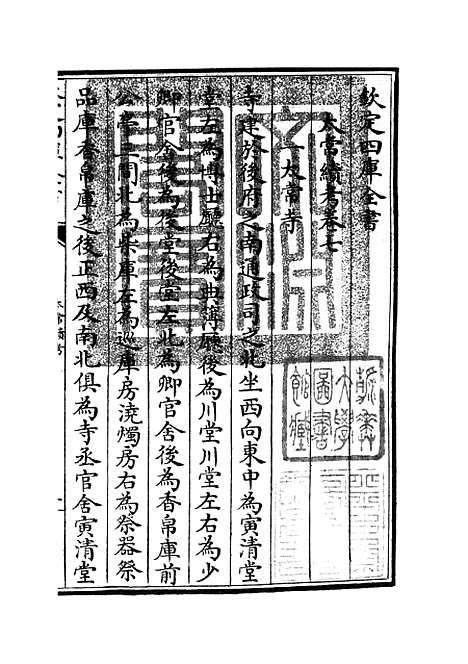 欽定四庫全書
太常續考卷七
太常寺
寺建於後府之南通政司之北坐西向東中為寅清堂
堂左為博士廳右為典簿廳後為川堂川堂左右為少
卿官舍後為後堂後堂左北為卿官舍後為香帛庫前
間北為柴庫左為巡庫房澆燭房右為祭器祭
品庫香帛庫之後正西及南北俱為寺丞官舍寅清堂
太常續考
大學
圖書